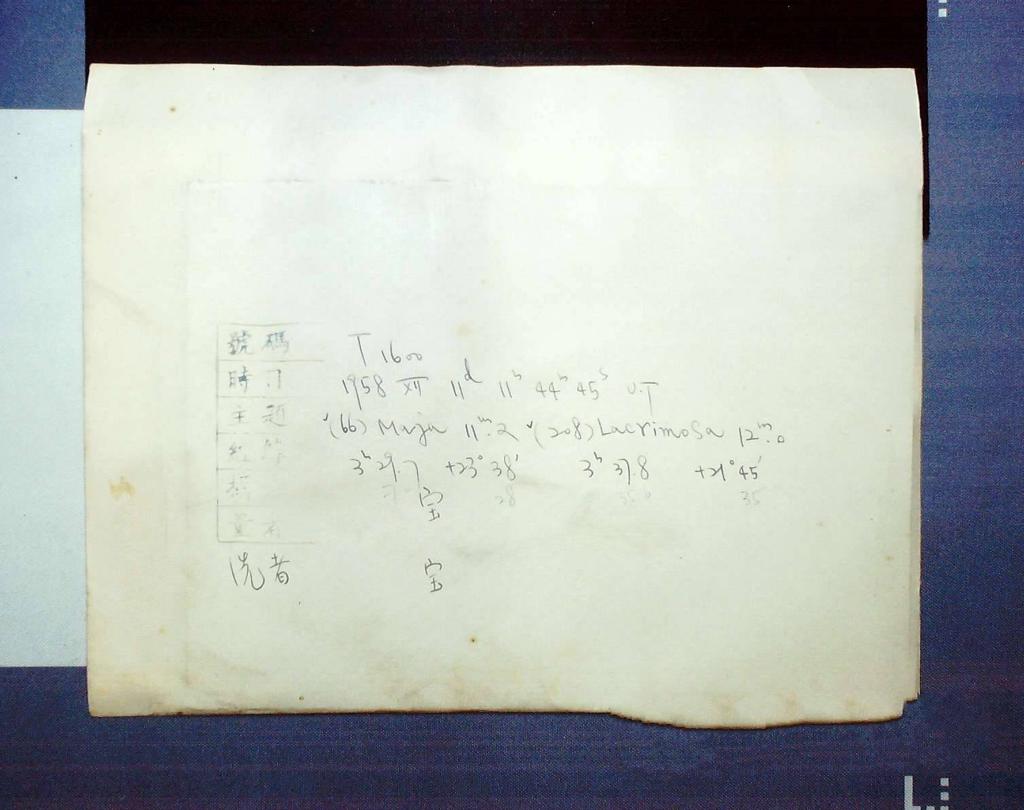 號碼 T 1600
時刻 1958 XII 11d 11h 44m 45s U.T
主題 (66) Maja 11m.2 (208) Lacrimosa 12m.0
3h 29.7 +23° 38' 3h 37.8 +21° 45'
28 35
宝
洗者 宝